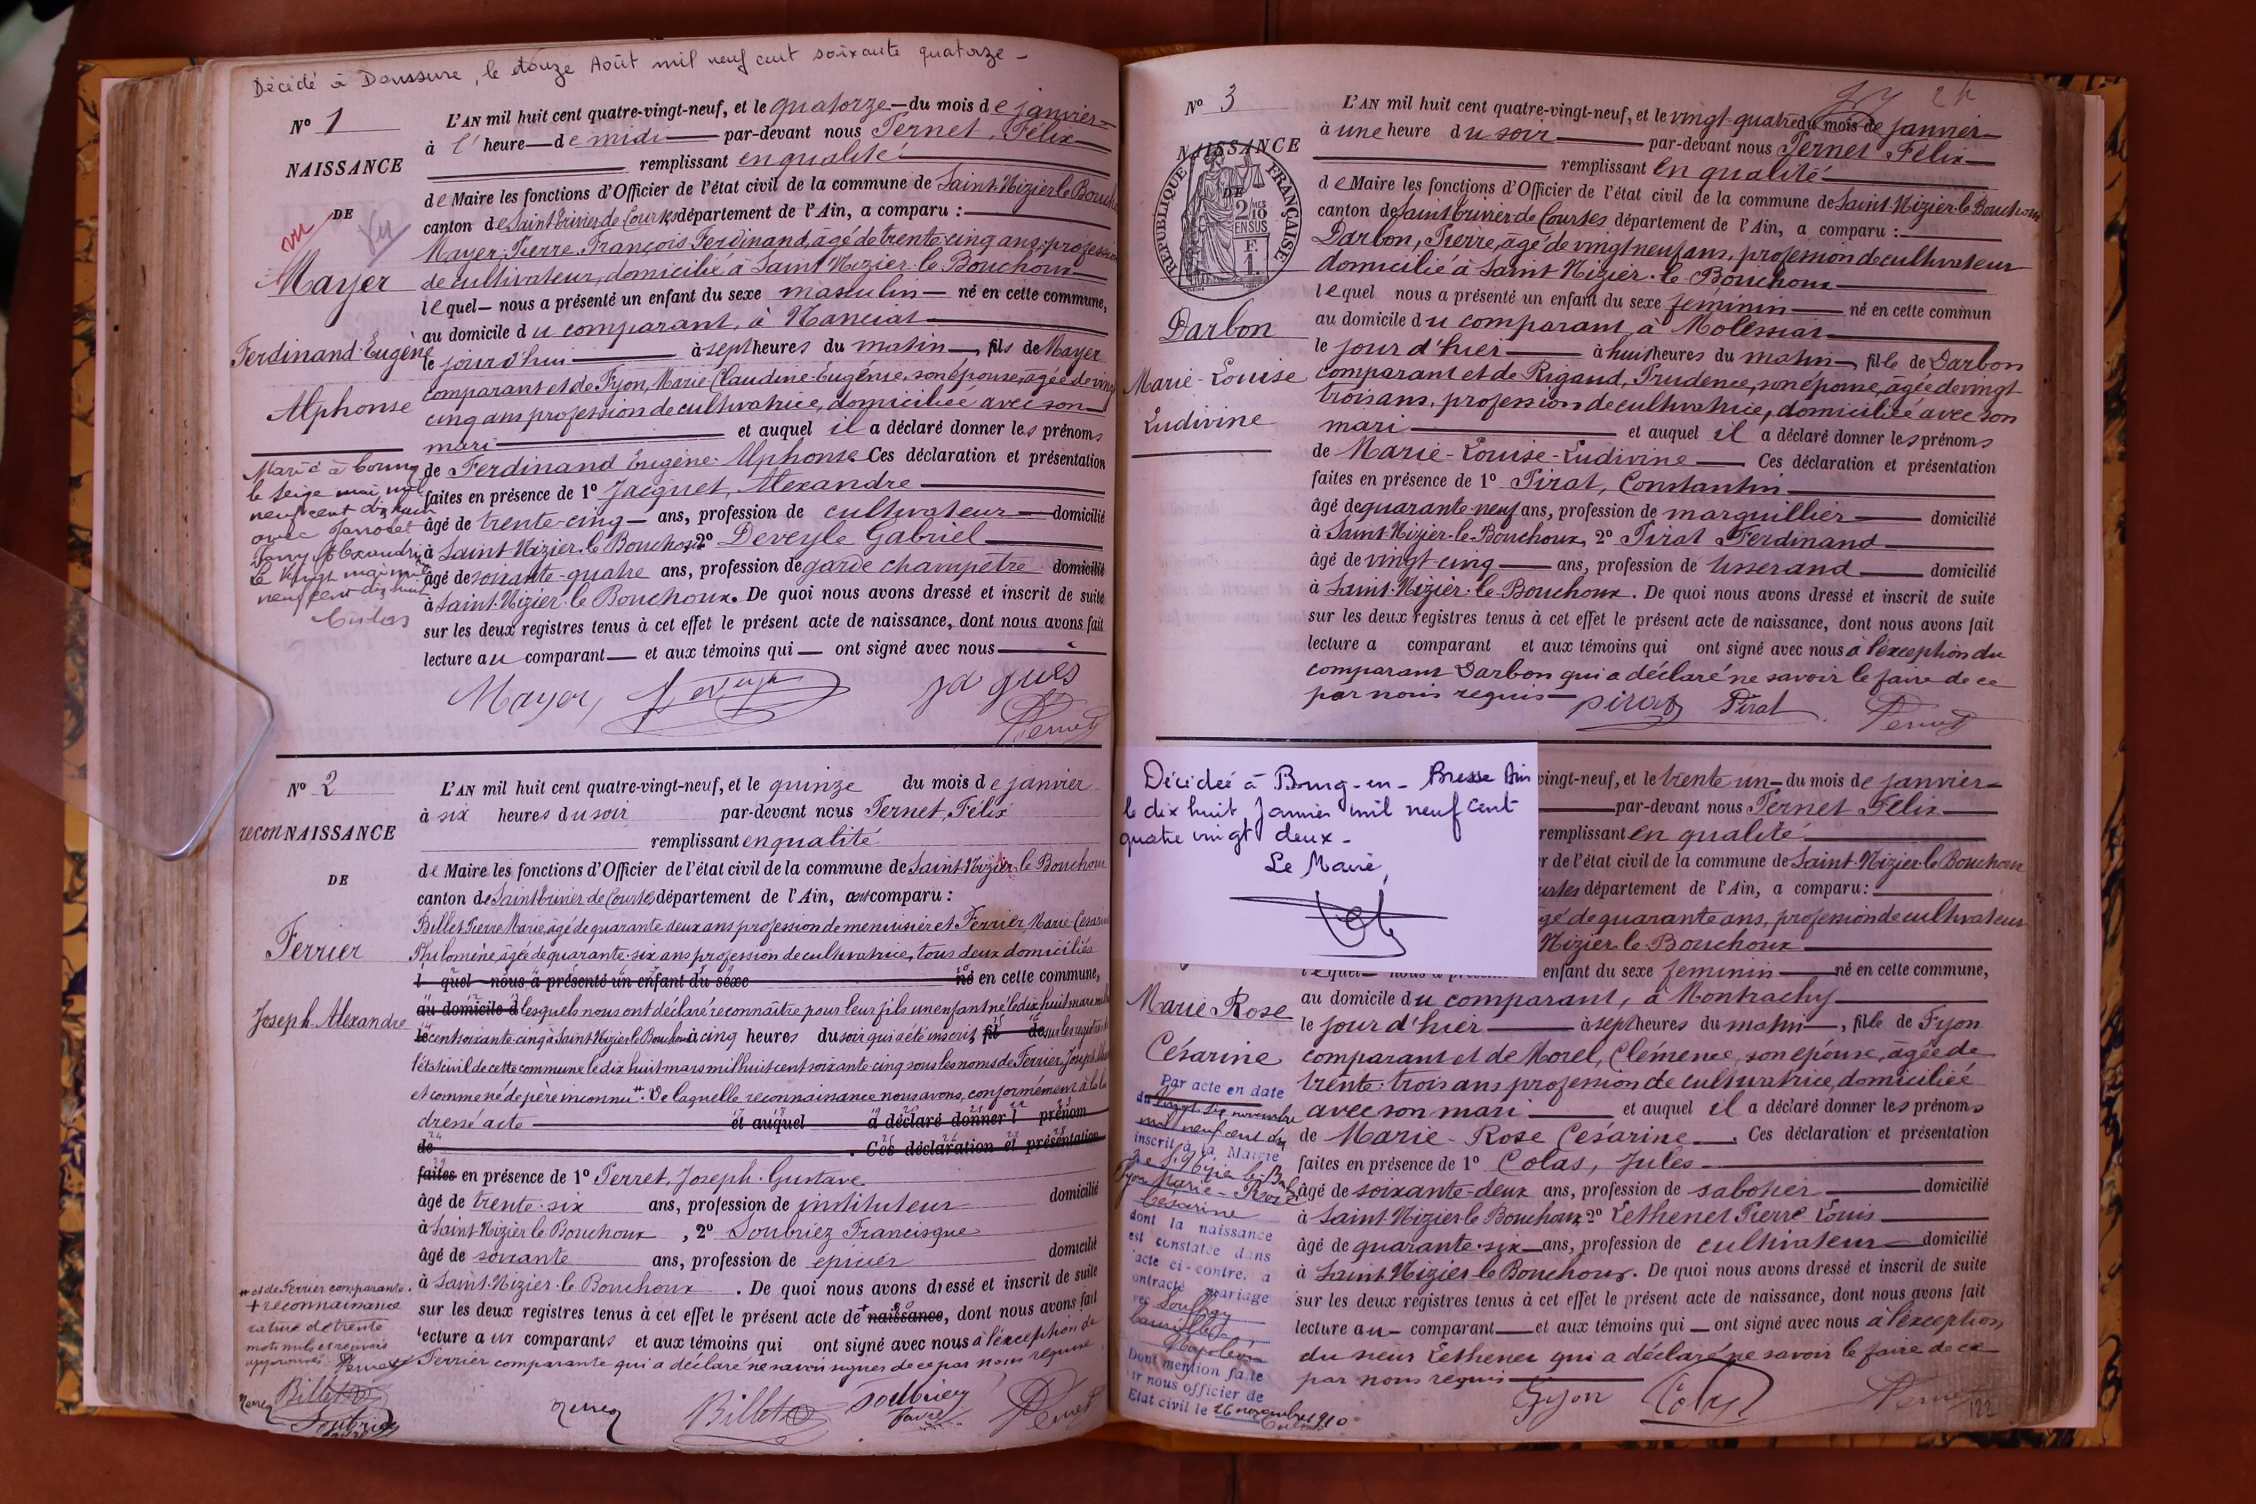 Décédé à Doussure, le douze Août mil neuf cent soixante quatorze -
N° 1
NAISSANCE
DE
vu
Mayer
Ferdinand-Eugène
Alphonse
Marié à Courmg
le seize mai mil
neuf cent dix huit
avec
le vingt mai mil
neuf cent dix huit
L'AN mil huit cent quatre-vingt-neuf, et le quatorze du mois de janvier
à l' heure de midi par-devant nous Pernet, Félix
remplissant en qualité
de Maire les fonctions d'Officier de l'état civil de la commune de Saint-Nizier-le-Bouch
canton de Saint Trivier de Courtes département de l'Ain, a comparu :
Mayer, Pierre François Ferdinand, âgé de trente-cinq ans, profession
de cultivateur, domicilié à Saint Nizier-le-Bouchoux
lequel nous a présenté un enfant du sexe masculin né en cette commune,
au domicile du comparant, à Nanciat
le jourd'hui à sept heures du matin, fils de Mayer
comparant et de Fyon, Marie Claudine Eugénie, son épouse, âgée de vingt
cinq ans profession de cultivatrice, domiciliée avec son
mari et auquel il a déclaré donner les prénoms
de Ferdinand Eugène Alphonse Ces déclaration et présentation
faites en présence de 1° Jacquet, Alexandre
âgé de trente-cinq ans, profession de cultivateur domicilié
à Saint-Nizier-le-Bouchoux 2° Deveyle Gabriel
âgé de soixante-quatre ans, profession de garde champêtre domicilié
à Saint-Nizier-le Bouchoux. De quoi nous avons dressé et inscrit de suite
sur les deux registres tenus à cet effet le présent acte de naissance, dont nous avons fait
lecture au comparant et aux témoins qui ont signé avec nous
Mayer, Deveyle jaques
Pernet
N° 2
reconNAISSANCE
DE
Ferrier
Joseph-Alexandre
L'AN mil huit cent quatre-vingt-neuf, et le quinze du mois de janvier
à six heures du soir par-devant nous Pernet, Félix
remplissant en qualité
de Maire les fonctions d'Officier de l'état civil de la commune de Saint-Nizier-le Bouchoux
canton de Saint Trivier de Courtes département de l'Ain, ont comparu :
Billet Pierre Marie, âgé de quarante deux ans profession de menuisier et Ferrier Marie Césarine
Philomène, âgée de quarante-six ans profession de cultivatrice, tous deux domiciliés
l quel nous a présenté un enfant du sexe né en cette commune,
au domicile d lesquels nous ont déclaré reconnaître pour leur fils un enfant né le dix huit mars mil
le cent soixante-cinq à Saint Nizier le Bouchoux à cinq heures du soir qui a été inscrit fil de sur les registres de
l'état civil de cette commune le dix huit mars mil huit cent soixante cinq sous les noms de Ferrier, Joseph
et comme né de père inconnu #. De laquelle reconnaissance nous avons, conformément à la loi
dressé acte et auquel a déclaré donner l prénom
de . Ces déclaration et présentation
faites en présence de 1° Perret, Joseph-Gustave
âgé de trente-six ans, profession de instituteur domicilié
à Saint Nizier le Bouchoux , 2° Soubriez Francisque
âgé de soixante ans, profession de epicier domicilié
à Saint-Nizier-le Bouchoux . De quoi nous avons dressé et inscrit de suite
sur les deux registres tenus à cet effet le présent acte de + naissance, dont nous avons fait
lecture aux comparants et aux témoins qui ont signé avec nous à l'exception de
Ferrier comparante qui a déclaré ne savoir signer de ce par nous requise
# et de Ferrier comparante.
+ reconnaissance
rature de trente
mots nuls et renvois
approuvés
Pernet
Billet
Soubriez
Billet
Soubriez
Pernet
N° 3
NAISSANCE
DE
RÉPUBLIQUE FRANÇAISE
Darbon
Marie-Louise
Ludivine
L'AN mil huit cent quatre-vingt-neuf, et le vingt-quatre du mois de janvier
à une heure du soir par-devant nous Pernet Félix
remplissant en qualité
de Maire les fonctions d'Officier de l'état civil de la commune de Saint-Nizier-le-Bouchoux
canton de Saint Trivier de Courtes département de l'Ain, a comparu :
Darbon, Pierre, âgé de vingt neuf ans, profession de cultivateur
domicilié à Saint Nizier-le Bouchoux
lequel nous a présenté un enfant du sexe féminin né en cette commun
au domicile du comparant à Molessiat
le jour d'hier à huit heures du matin, fille de Darbon
comparant et de Rigaud, Prudence, son épouse, âgée de vingt
trois ans, profession de cultivatrice, domiciliée avec son
mari et auquel il a déclaré donner les prénoms
de Marie-Louise-Ludivine Ces déclaration et présentation
faites en présence de 1° Pirat, Constantin
âgé de quarante-neuf ans, profession de marguillier domicilié
à Saint-Nizier-le-Bouchoux, 2° Pirat Ferdinand
âgé de vingt-cinq ans, profession de tisserand domicilié
à Saint-Nizier-le-Bouchoux. De quoi nous avons dressé et inscrit de suite
sur les deux registres tenus à cet effet le présent acte de naissance, dont nous avons fait
lecture a comparant et aux témoins qui ont signé avec nous à l'exception du
comparant Darbon qui a déclaré ne savoir le faire de ce
par nous requis
pirat Pirat Pernet
Décédée à Bourg-en-Bresse Ain
le dix huit Janvier mil neuf cent
quatre vingt deux -
Le Maire,
vingt-neuf, et le trente un du mois de janvier
par-devant nous Pernet Félix
remplissant en qualité
er de l'état civil de la commune de Saint-Nizier-le Bouchoux
urtes département de l'Ain, a comparu :
gé de quarante ans, profession de cultivateur
Nizier-le-Bouchoux
lequel nous a présenté enfant du sexe féminin né en cette commune,
au domicile du comparant, à Montrachy
le jour d'hier à sept heures du matin, fille de Fyon
comparant et de Morel, Clémence, son épouse, âgée de
trente-trois ans profession de cultivatrice, domiciliée
avec son mari et auquel il a déclaré donner les prénoms
de Marie-Rose Césarine. Ces déclaration et présentation
faites en présence de 1° Colas, Jules
âgé de soixante-deux ans, profession de sabotier domicilié
à Saint-Nizier le Bouchoux 2° Lethenet Pierre Louis
âgé de quarante-six ans, profession de cultivateur domicilié
à Saint Nizier-le-Bouchoux. De quoi nous avons dressé et inscrit de suite
sur les deux registres tenus à cet effet le présent acte de naissance, dont nous avons fait
lecture au comparant et aux témoins qui ont signé avec nous à l'exception
du sieur Lethenet qui a déclaré ne savoir le faire de ce
par nous requis
Fyon Colas Pernet
122
Marie Rose
Césarine
Par acte en date
du vingt six novembre
mil neuf cent dix
inscrit à la Mairie
de St Nizier le-Bch
Fyon Marie-Rose
Césarine
dont la naissance
est constatée dans
'acte ci-contre, a
ontracté mariage
vec
Dont mention faite
ar nous officier de
Etat civil le 26 novembre 1910